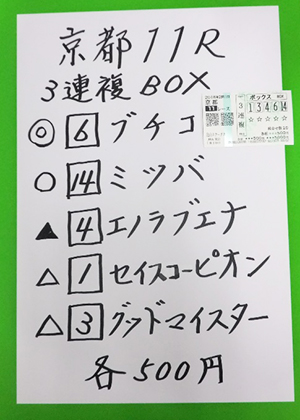 京都11R
3連複BOX
◎ 6 ブチコ
○ 14 ミツバ
▲ 4 エノラブエナ
△ 1 セイスコーピオン
△ 3 グッドマイスター
各500円
京都
11 レース
3連複
ボックス
1 3 4 6 14
☆☆☆☆☆